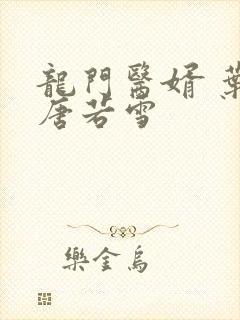 龍門醫婿 葉
唐若雪
樂金烏